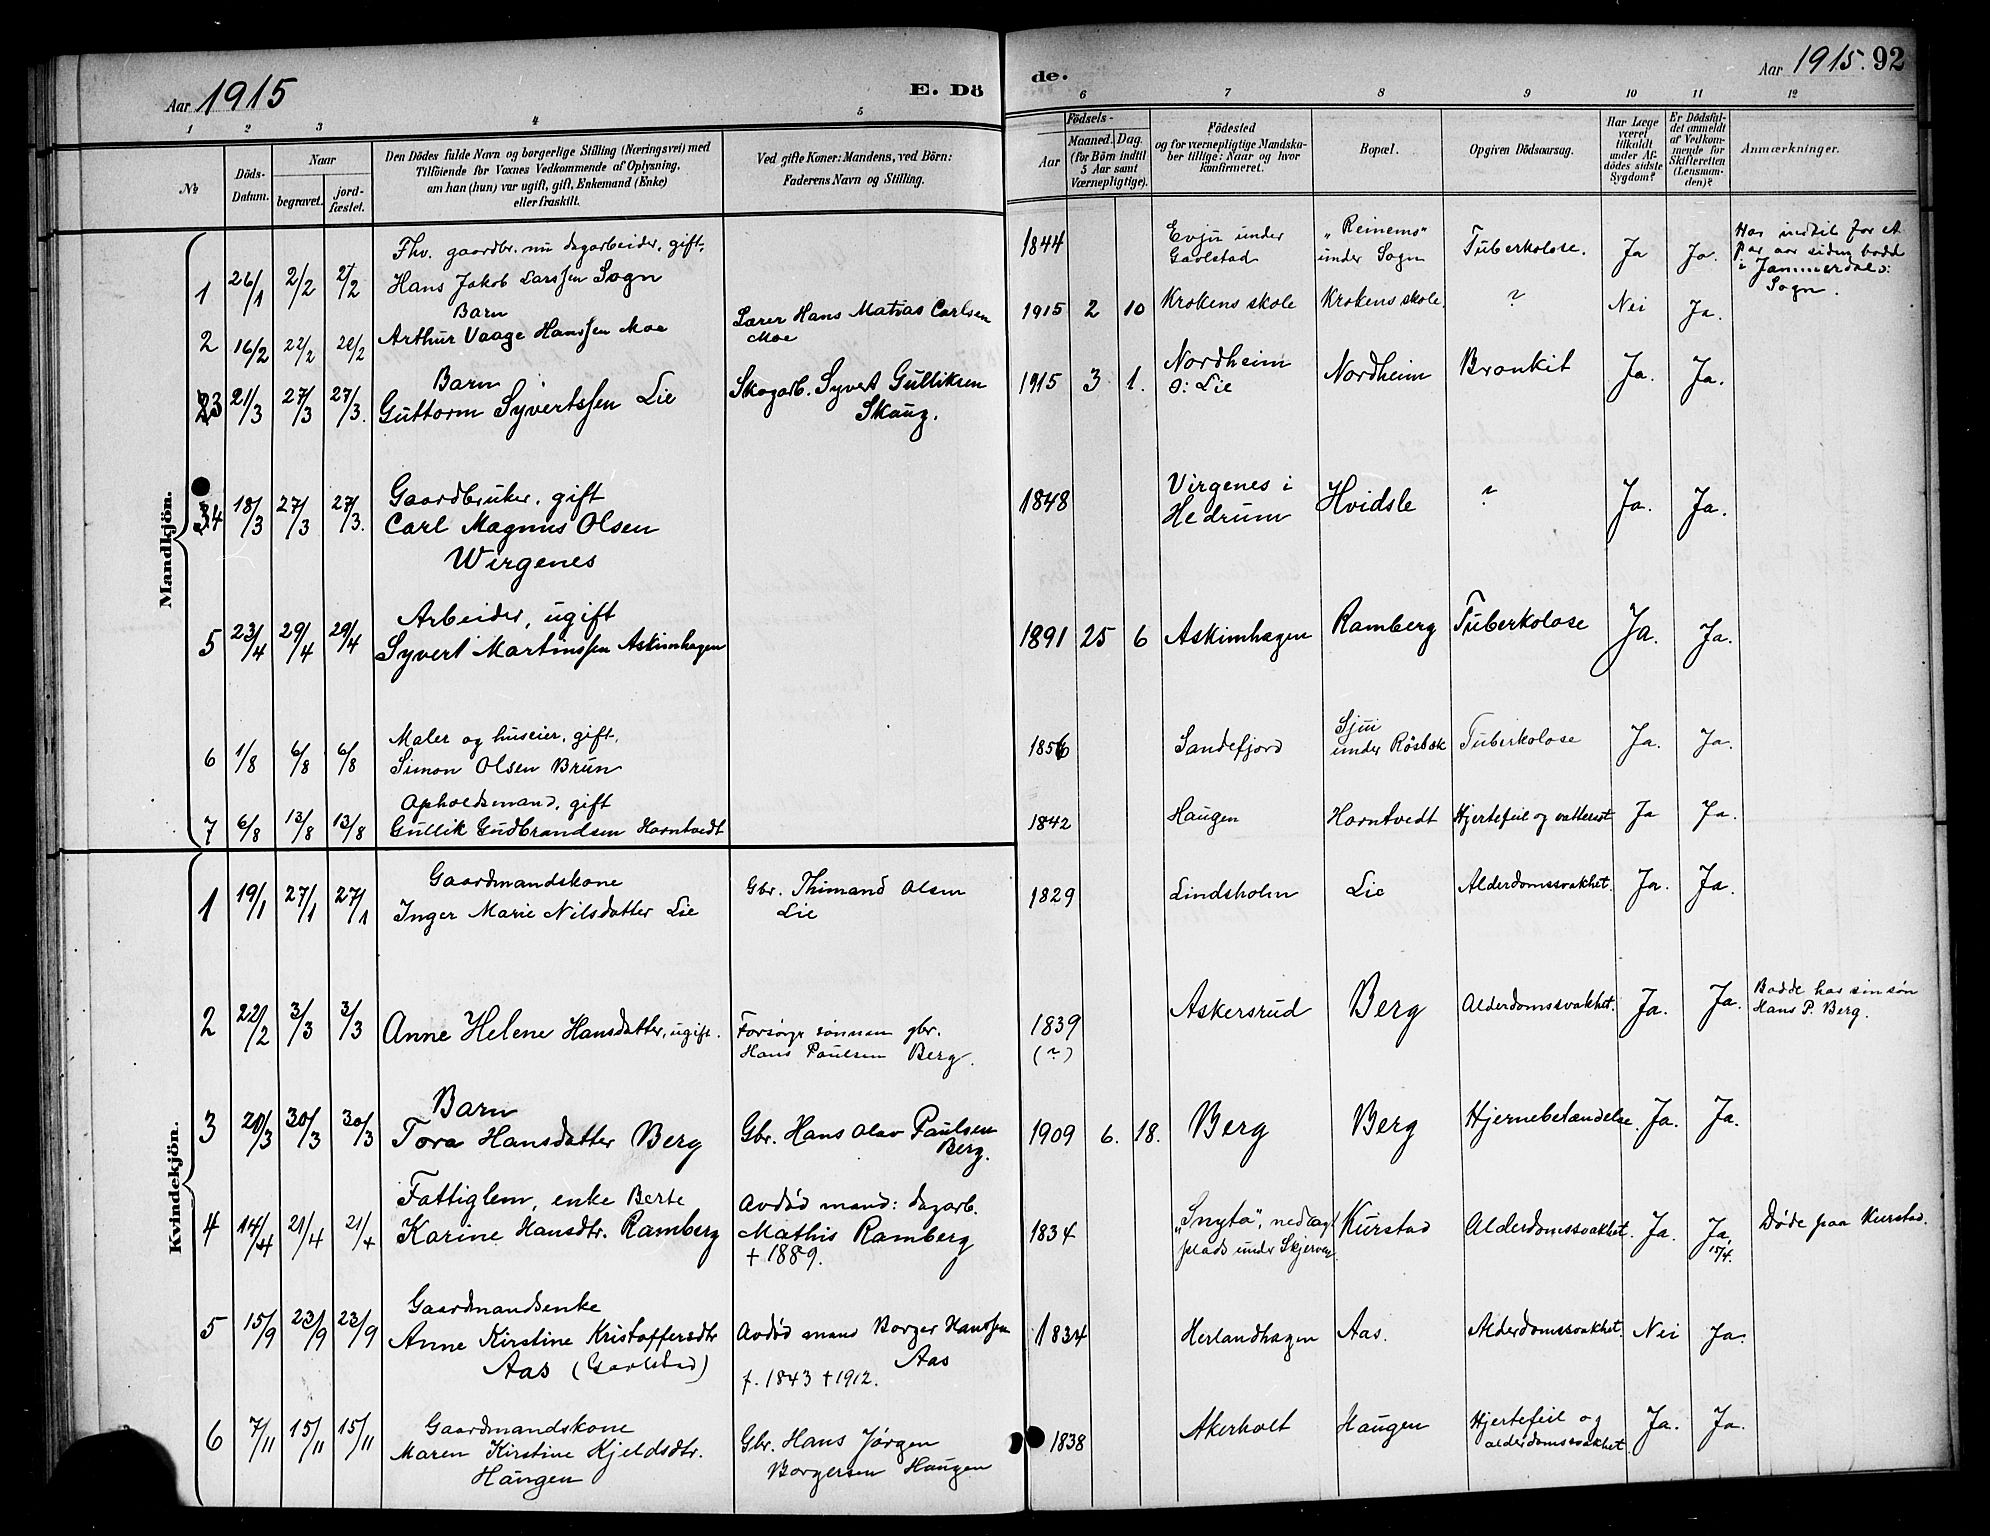 Aar 1915
E. Dö
de.
Aar 1915. 92
1 2 3 4 5 6 7 8 9 10 11 12
№
Döds-Datum.
Naar
begravet.
jord-fæstet.
Den Dödes fulde Navn og borgerlige Stilling (Næringsvei) med
Tilföiende for Voxnes Vedkommende af Oplysning,
om han (hun) var ugift, gift, Enkemand (Enke)
eller fraskilt.
Ved gifte Koner: Mandens, ved Börn:
Faderens Navn og Stilling.
Födsels-
Aar
Maaned. Dag.
(for Börn indtil
5 Aar samt
Værnepligtige).
Födested
og for værnepligtige Mandska-
ber tillige: Naar og hvor
konfirmeret.
Bopæl.
Opgiven Dödsaarsag.
Har Læge
været
tilkaldt
under Af-
dödes sidste
Sygdom?
Er Dödsfal-
det anmeldt
af Vedkom-
mende for
Skifteretten
(Lensman-
den)?
Anmærkninger.
Mandkjön.
Fhv. gaardbr. nu dagarbeider, gift,
1 26/1 2/2 2/2 Hans Jakob Larssen Sogn
1844 Evju under Gavlstad "Reinems" under Sogn Tuberkolose. Ja Ja.
Har indtil for et
par aar siden bodd
i Jammerdal o:
Sogn.
Barn
2 16/2 22/2 22/2 Arthur Vaage Hanssen Moe
Lærer Hans Matias Carlsen
Moe
1915 2 10 Krokens skole Krokens skole. ? Nei Ja.
Barn
3 21/3 27/3 27/3. Guttorm Syvertssen Lie
Skogarb. Syvert Gulliksen
Skaug.
1915 3 1. Nordheim o: Lie Nordheim Bronkit Ja. Ja.
Gaardbruker, gift
4 18/3 27/3 27/3. Carl Magnus Olsen
Wirgenes
1848 Virgenes i Hedrum Hvidsle ? Ja. Ja.
Arbeider, ugift
5 23/4 29/4 29/4 Syvert Martinssen Askimhagen
1891 25 6 Askimhagen Ramberg Tuberkolose Ja. Ja.
Maler og huseier, gift,
6 1/8 6/8 6/8 Simon Olsen Brun
1856 Sandefjord Sjui under Rösbæk Tuberkolose Ja. Ja.
Opholdsmand, gift
7 6/8 13/8 13/8 Gullik Gudbrandsen Horntvedt
1842 Haugen Horntvedt Hjertefeil og vattersot Ja Ja.
Kvindekjön.
Gaardmandskone
1 19/1 27/1 27/1 Inger Marie Nilsdatter Lie
Gbr. Thimand Olsen
Lie
1829 Lindsholm Lie Alderdomssvakhet. Ja. Ja.
2 22/2 3/3 3/3 Anne Helene Hansdatter, ugift.
Forsörge sönnen gbr.
Hans Paulsen Berg.
1839 (?) Askersrud Berg Alderdomssvakhet. Ja. Ja.
Bodde hos sin søn
Hans P. Berg.
Barn
3 20/3 30/3 30/3 Tora Hansdatter Berg
Gbr. Hans Olav Paulsen
Berg.
1909 6. 18. Berg Berg Hjernebetændelse. Ja. Ja.
Fattiglem, enke Berte
4 14/4 21/4 21/4 Karine Hansdtr. Ramberg
Avdød mand: dagarb.
Mathis Ramberg
+ 1889.
1834 "Snyta", nedlagt plads under Skjerven Kurstad Alderdomssvakhet. Ja. Ja. 15/4.
Døde paa Kurstad.
Gaardmandsenke
5 15/9 23/9 23/9 Anne Kirstine Kristoffersdtr
Aas (Gavlstad)
Avdød mand Borger Hanssen
Aas
f. 1843 + 1912.
1834 Herlandhagen Aas. Alderdomssvakhet. Nei Ja.
Gaardmandskone
6 7/11 15/11 15/11 Maren Kirstine Kjeldsdtr.
Haugen
Gbr. Hans Jørgen
Borgersen Haugen
1838 Akerholt Haugen Hjertefeil og alderdomssvakhet. Ja. Ja.